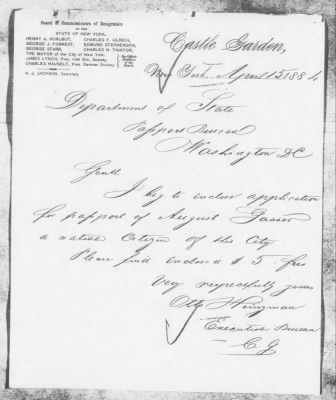 Board of Commissioners of Emigration
OF THE
STATE OF NEW YORK.
HENRY A. HURLBUT, CHARLES F. ULRICH,
GEORGE J. FORREST, EDMUND STEPHENSON,
GEORGE STARR, CHARLES N. TAINTOR,
THE MAYOR of the CITY OF NEW YORK,
JAMES LYNCH, Pres. Irish Em. Society,
CHARLES HAUSELT, Pres. German Society,
H. J. JACKSON, Secretary.
Castle Garden,
New York, April 12 1884
Department of State
Passport Bureau
Washington DC
Gents
I beg to inclose application
for passport of August
a native Citizen of this City.
Please find inclosed $5 fees
Very respectfully yours
Otto
Executive Bureau
C G